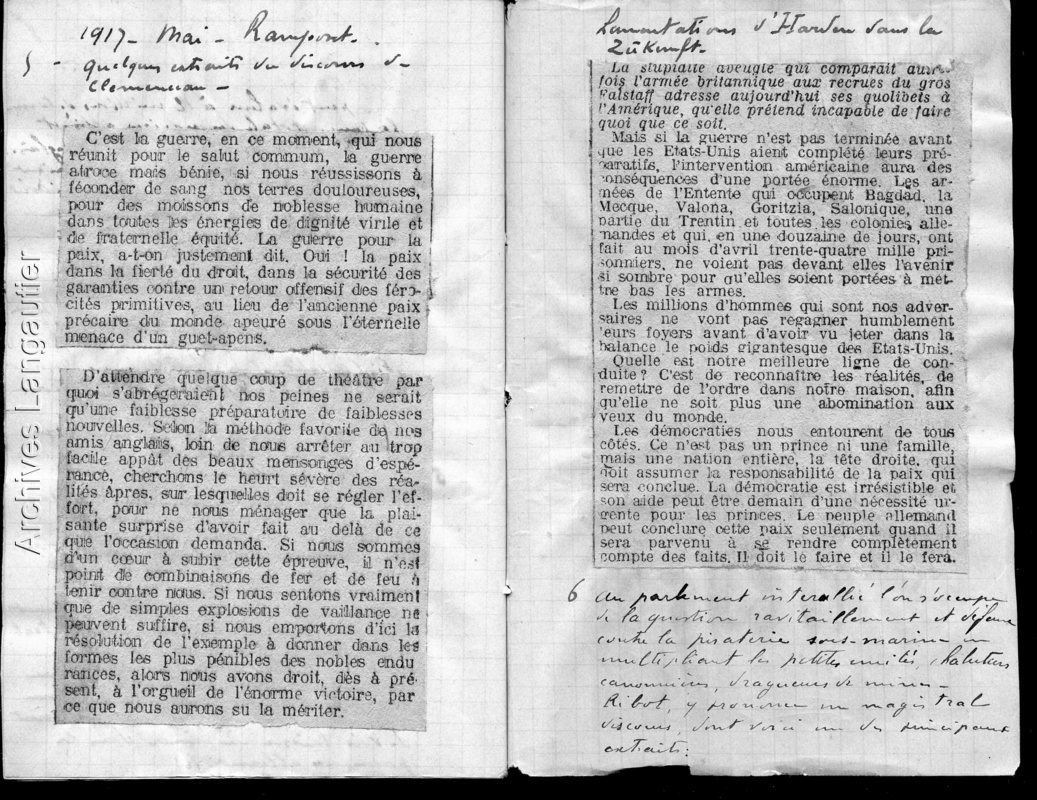 1917 - Mai - Rampont.
5 - quelques extraits du discours de
Clemenceau -
C'est la guerre, en ce moment, qui nous
réunit pour le salut commun, la guerre
atroce mais bénie, si nous réussissons à
féconder de sang nos terres douloureuses,
pour des moissons de noblesse humaine
dans toutes les énergies de dignité virile et
de fraternelle équité. La guerre pour la
paix, a-t-on justement dit. Oui ! la paix
dans la fierté du droit, dans la sécurité des
garanties contre un retour offensif des féro-
cités primitives, au lieu de l'ancienne paix
précaire du monde apeuré sous l'éternelle
menace d'un guet-apens.
D'attendre quelque coup de théâtre par
quoi s'abrégeraient nos peines ne serait
qu'une faiblesse préparatoire de faiblesses
nouvelles. Selon la méthode favorite de nos
amis anglais, loin de nous arrêter au trop
facile appât des beaux mensonges d'espé-
rance, cherchons le heurt sévère des réa-
lités âpres, sur lesquelles doit se régler l'ef-
fort, pour ne nous ménager que la plai-
sante surprise d'avoir fait au delà de ce
que l'occasion demanda. Si nous sommes
d'un cœur à subir cette épreuve, il n'est
point de combinaisons de fer et de feu à
tenir contre nous. Si nous sentons vraiment
que de simples explosions de vaillance ne
peuvent suffire, si nous emportons d'ici la
résolution de l'exemple à donner dans les
formes les plus pénibles des nobles endu
rances, alors nous avons droit, dès à pré-
sent, à l'orgueil de l'énorme victoire, par
ce que nous aurons su la mériter.
Archives Langautier
Lamentations d'Harden dans la
Zükunft.
La stupidité aveugle qui comparait autre-
fois l'armée britannique aux recrues du gros
Falstaff adresse aujourd'hui ses quolibets à
l'Amérique, qu'elle prétend incapable de faire
quoi que ce soit.
Mais si la guerre n'est pas terminée avant
que les Etats-Unis aient complété leurs pré-
paratifs, l'intervention américaine aura des
conséquences d'une portée énorme. Les ar-
mées de l'Entente qui occupent Bagdad, la
Mecque, Valona, Goritzia, Salonique, une
partie du Trentin et toutes les colonies alle-
mandes et qui, en une douzaine de jours, ont
fait au mois d'avril trente-quatre mille pri-
sonniers, ne voient pas devant elles l'avenir
si sombre pour qu'elles soient portées à met-
tre bas les armes.
Les millions d'hommes qui sont nos adver-
saires ne vont pas regagner humblement
leurs foyers avant d'avoir vu jeter dans la
balance le poids gigantesque des Etats-Unis.
Quelle est notre meilleure ligne de con-
duite ? C'est de reconnaître les réalités, de
remettre de l'ordre dans notre maison, afin
qu'elle ne soit plus une abomination aux
yeux du monde.
Les démocraties nous entourent de tous
côtés. Ce n'est pas un prince ni une famille,
mais une nation entière, la tête droite, qui
doit assumer la responsabilité de la paix qui
sera conclue. La démocratie est irrésistible et
son aide peut être demain d'une nécessité ur-
gente pour les princes. Le peuple allemand
peut conclure cette paix seulement quand il
sera parvenu à se rendre complètement
compte des faits. Il doit le faire et il le fera.
6 au parlement interallié l'on s'occupe
de la question ravitaillement et défense
contre la piraterie sous-marine en
multipliant les petites unités, chalutiers
canonnières, dragueurs de mines -
Ribot, y prononce un magistral
discours, dont voici un des principaux
extraits: